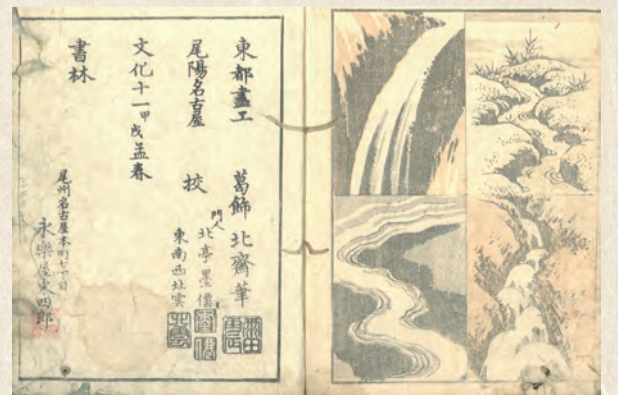 東都畫工　葛飾北齋筆
尾陽名古屋　校　門人　北亭墨僊
東南西北雲
文化十一甲戌孟春
書林
尾州名古屋本町七丁目
永樂屋東四郎